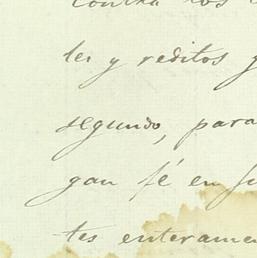 contra los
les y reditos y
segundo, para
gan fé en ju
tes enterame